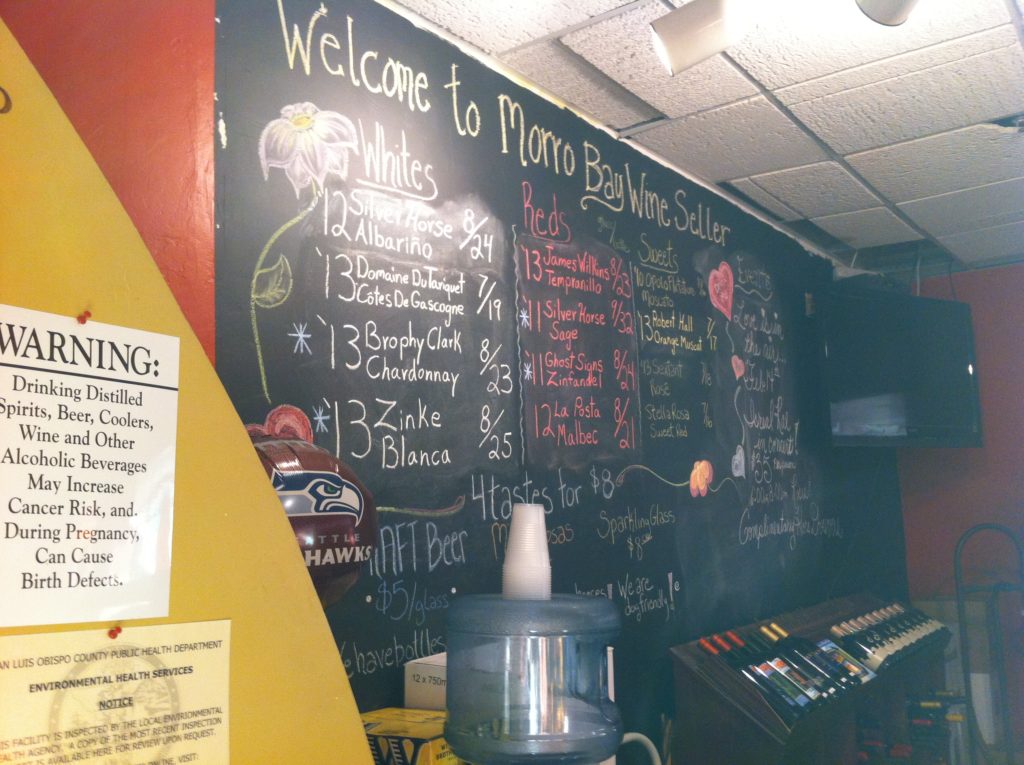 Welcome to Morro Bay Wine Seller
Whites
'12 Silver Horse 8/24
Albariño
'13 Domaine Du Tariquet 7/19
Côtes De Gascogne
'13 Brophy Clark 8/23
Chardonnay
'13 Zinke 8/25
Blanca
Reds
'13 James Wilkins 8/23
Tempranillo
'11 Silver Horse 9/32
Sage
'11 Ghost Signs 8/24
Zinfandel
12 La Posta 8/21
Malbec
Sweets
Moscato
'13 Robert Hall 7/17
Orange Muscat
Rosé
Stella Rosa
Sweet Red
Events
Love is in
the air
Feb 14th
$35
4 tastes for $8
Beer
$5/glass
Sparkling Glass
$8
We are
dog friendly!
have bottles
HAWKS
12 x 750m
WARNING:
Drinking Distilled
Spirits, Beer, Coolers,
Wine and Other
Alcoholic Beverages
May Increase
Cancer Risk, and,
During Pregnancy,
Can Cause
Birth Defects.
AN LUIS OBISPO COUNTY PUBLIC HEALTH DEPARTMENT
ENVIRONMENTAL HEALTH SERVICES
NOTICE
IS FACILITY IS INSPECTED BY THE LOCAL ENVIRONMENTAL
EALTH AGENCY. A COPY OF THE MOST RECENT INSPECTION
IS AVAILABLE HERE FOR REVIEW UPON REQUEST.
ONLINE, VISIT: